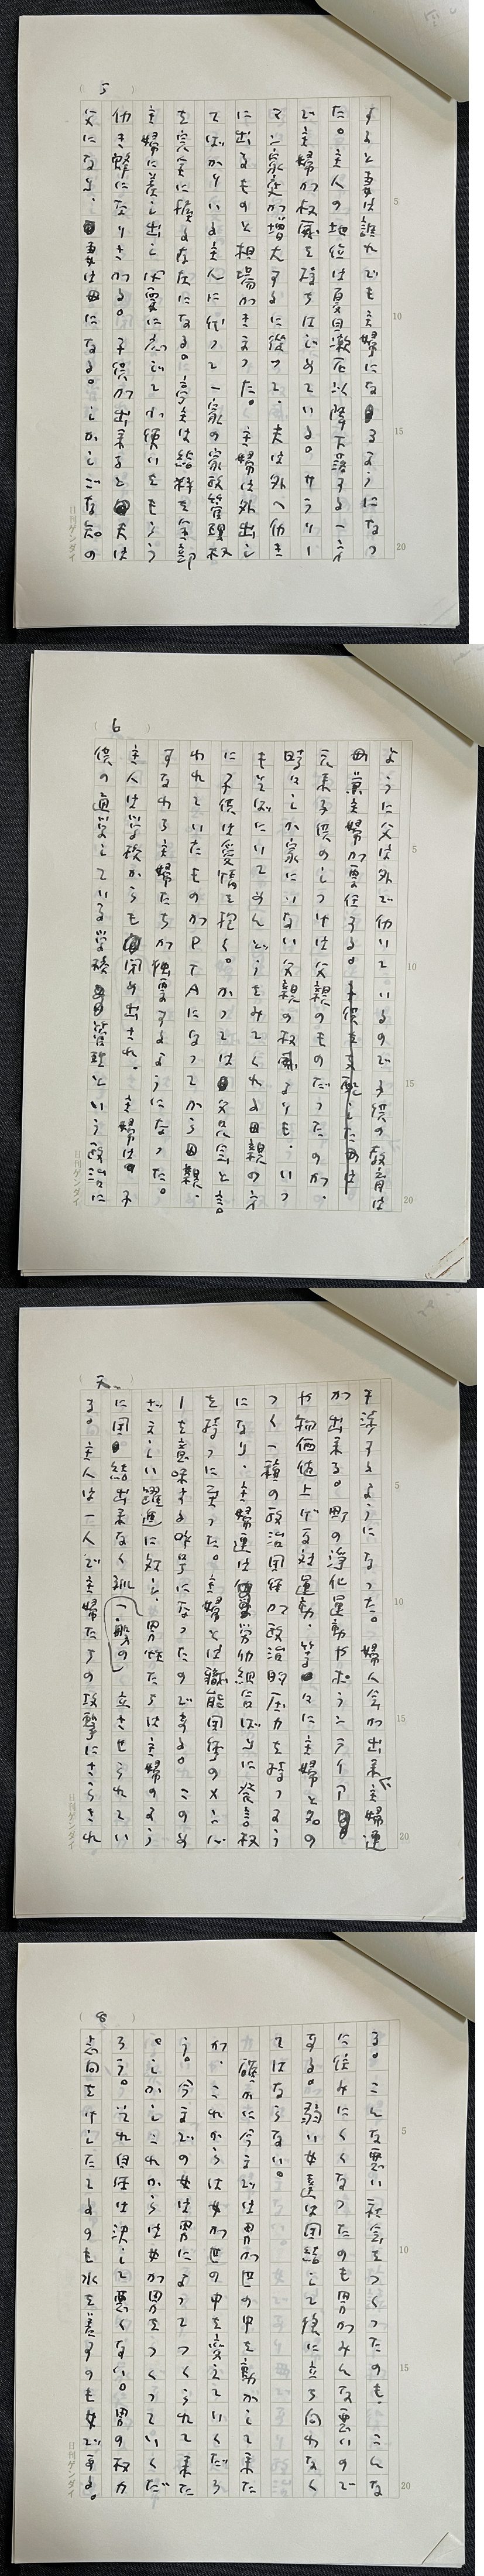 5
すると妻は誰れでも主婦になるようになっ
た。主人の地位は夏目漱石以降下落する一方
で主婦が权威を持ちはじめている。サラリー
マン家庭が増大するに従って、夫は外へ仂き
に出るものと相場がきまった。主婦は外出し
てばかりいる主人に代って一家の家政管理权
を完全に握る存在になる。亭主は給料を全部
主婦に差し出し必要に応じて小使いをもらう
仂き蜂になりさがる。子供が出来ると夫は
父になり、妻は母になる。しかしご存知の
日刊ゲンダイ
6
ように父は外で仂いているので子供の教育は
母兼主婦が責任する。
元来子供のしつけは父親のものだったのが、
時々しか家にいない父親の权威よりも、いつ
もそばにいてめんどうをみてくれる母親の方
に子供は愛情を抱く。かつては父兄会と言
われていたものがPTAになってから母親、
すなわち主婦たちが独占するようになった。
主人は学校からも閉め出され、主婦は子
供の通学している学校管理という政治に
日刊ゲンダイ
7
干渉するようになった。婦人会が出来、主婦連
が出来る。町の浄化運動やボランティア
や物価値上げ反対運動、等々に主婦と名の
つく一種の政治団体が政治的圧力を持つよう
になり、主婦連は労仂組合ばりに発言权
を持つに至った。主婦とは職能団体のメンバ
ーを意味する呼号になったのである。このめ
ざましい躍進に対し、男性たちは主婦のよう
に団結出来なく孤立させられてい
一般の
る。主人は一人で主婦たちの攻撃にさらされ
日刊ゲンダイ
8
る。こんな悪い社会をつくったのも、こんな
に住みにくくなったのも男がみんな悪いので
ある。弱い女達は団結して彼に立ち向わなく
てはならない。
確かに今までは男が世の中を動かして来た
が、これからは女が世の中を変えていくだろ
う。今までの女は男によってつくられて来た
。しかしこれからは女が男をつくっていくだ
ろう。それ自体は決して悪くない。男の权力
志向をけしたてるのも水を差すのも女である。
日刊ゲンダイ